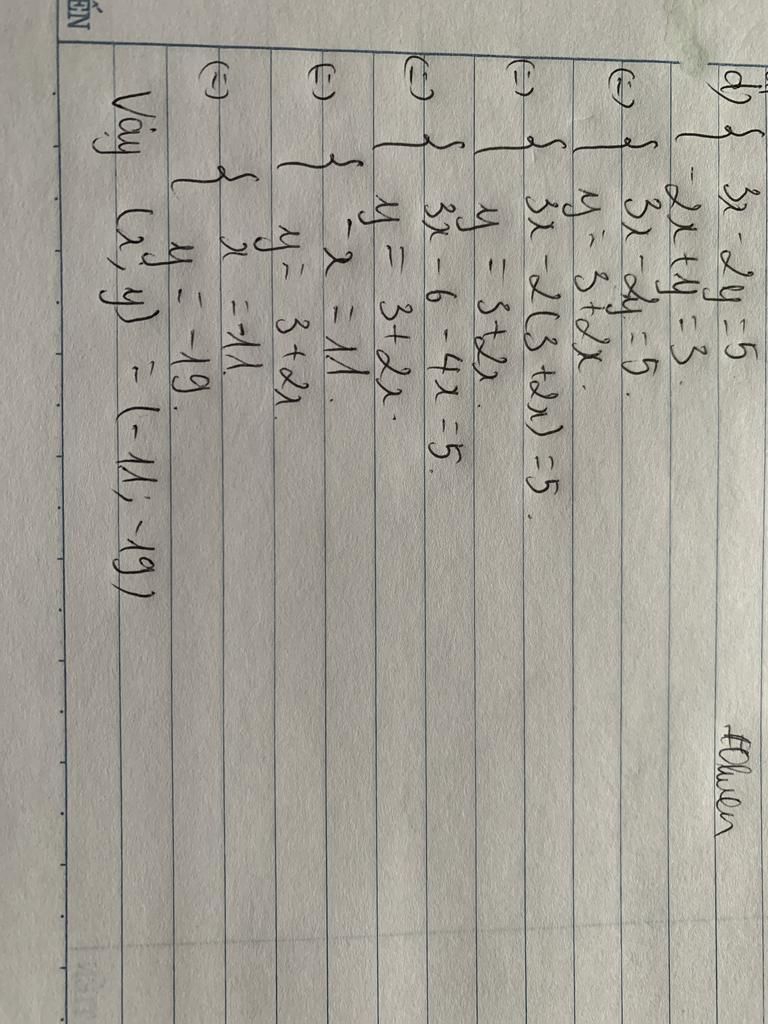 d) { 3x - 2y = 5
-2x + y = 3.
(=) { 3x - 2y = 5.
y = 3 + 2x.
(=) { 3x - 2(3 + 2x) = 5.
y = 3 + 2x.
(=) { 3x - 6 - 4x = 5.
y = 3 + 2x.
(=) { -x = 11.
y = 3 + 2x.
(=) { x = -11
y = -19.
Vậy (x, y) = (-11; -19)